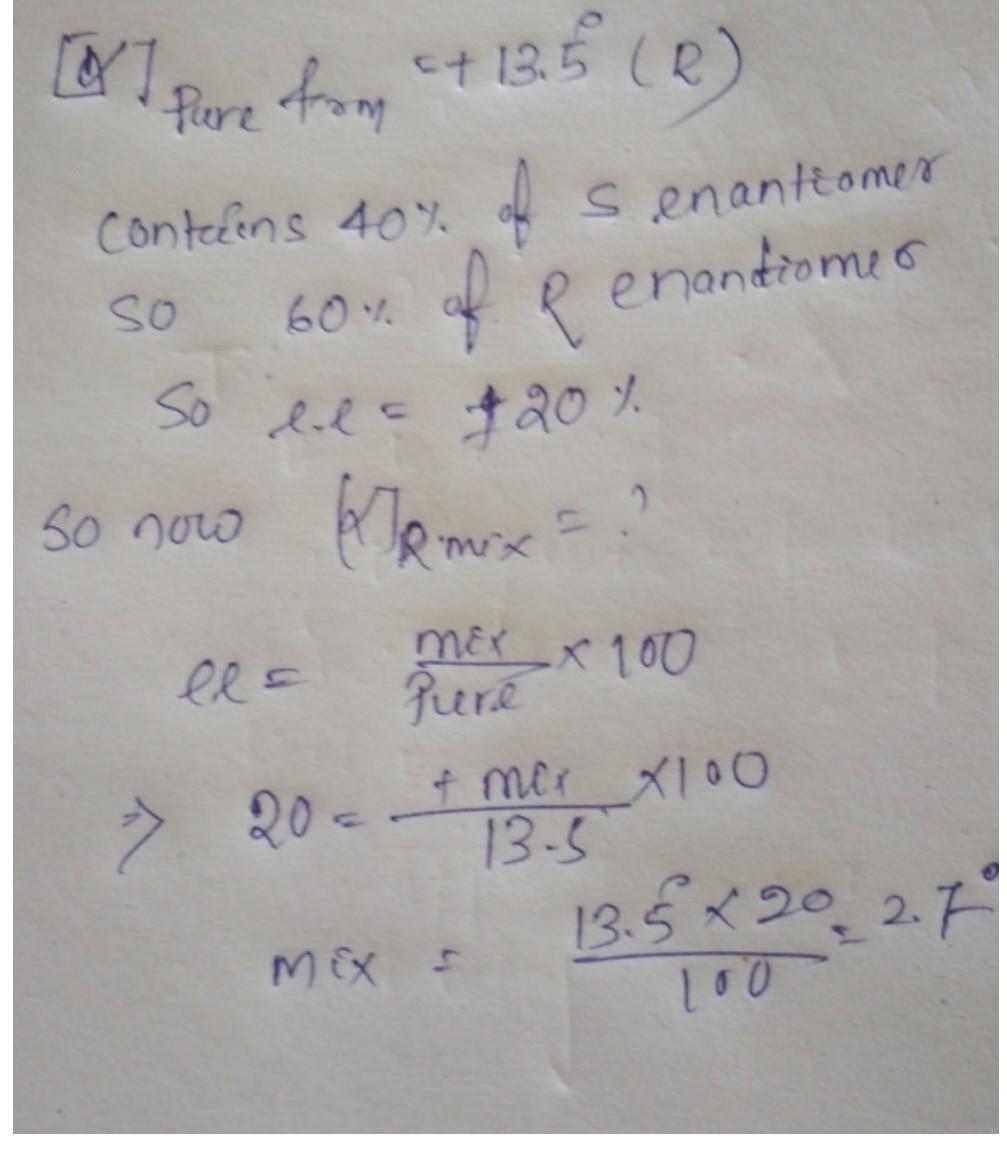 [α] Pure from = + 13.5° (R)
contains 40% of S enantiomer
so 60% of R enantiomer
So e.e = +20%
So now [α] R mix = ?
ee = mix / Pure × 100
⇒ 20 = + mix / 13.5 × 100
mix = 13.5° × 20 / 100 = 2.7°